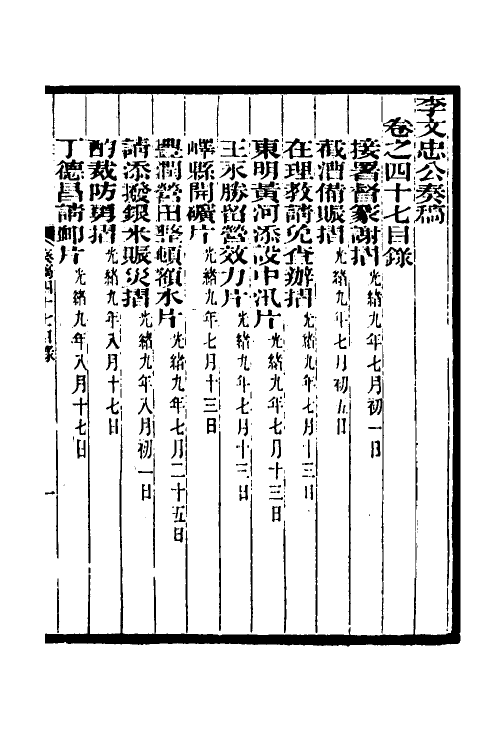 李文忠公奏稿
卷之四十七目錄
接署督篆謝摺光緒九年七月初一日
截漕備賑摺光緒九年七月初五日
在理教請免查辦摺光緒九年七月十三日
東明黃河添設中汛片光緒九年七月十三日
王永勝留營效力片光緒九年七月十三日
嶧縣開礦片光緒九年七月十三日
豐潤營田整頓額水片光緒九年七月二十五日
請添撥銀米賑災摺光緒九年八月初一日
酌裁防勇摺光緒九年八月十七日
丁德昌請卹片光緒九年八月十七日
奏稿四十七目錄
一